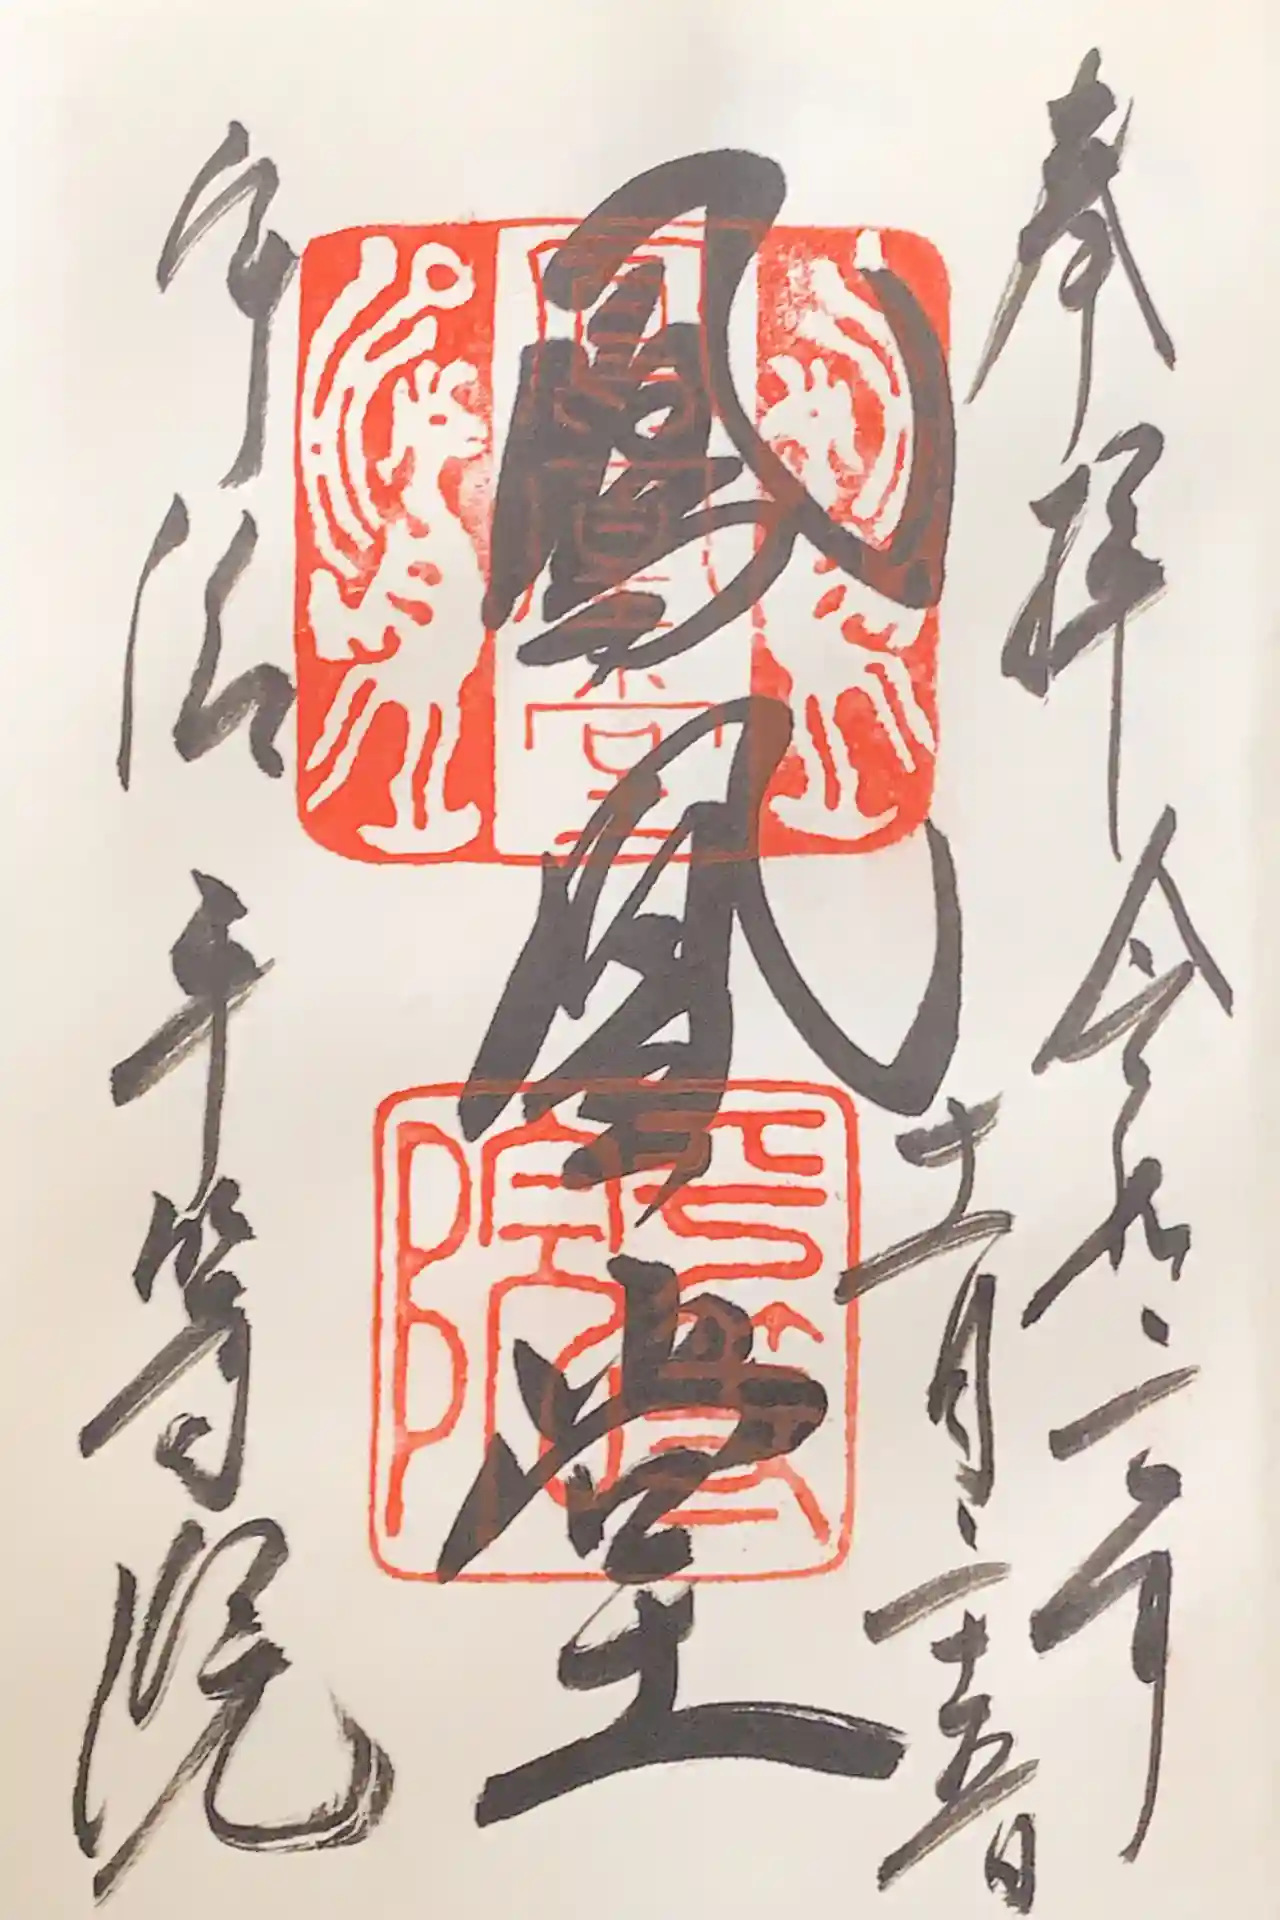 奉拝 令和二年
十一月二十五日
鳳凰堂
宇治 平等院
平等院